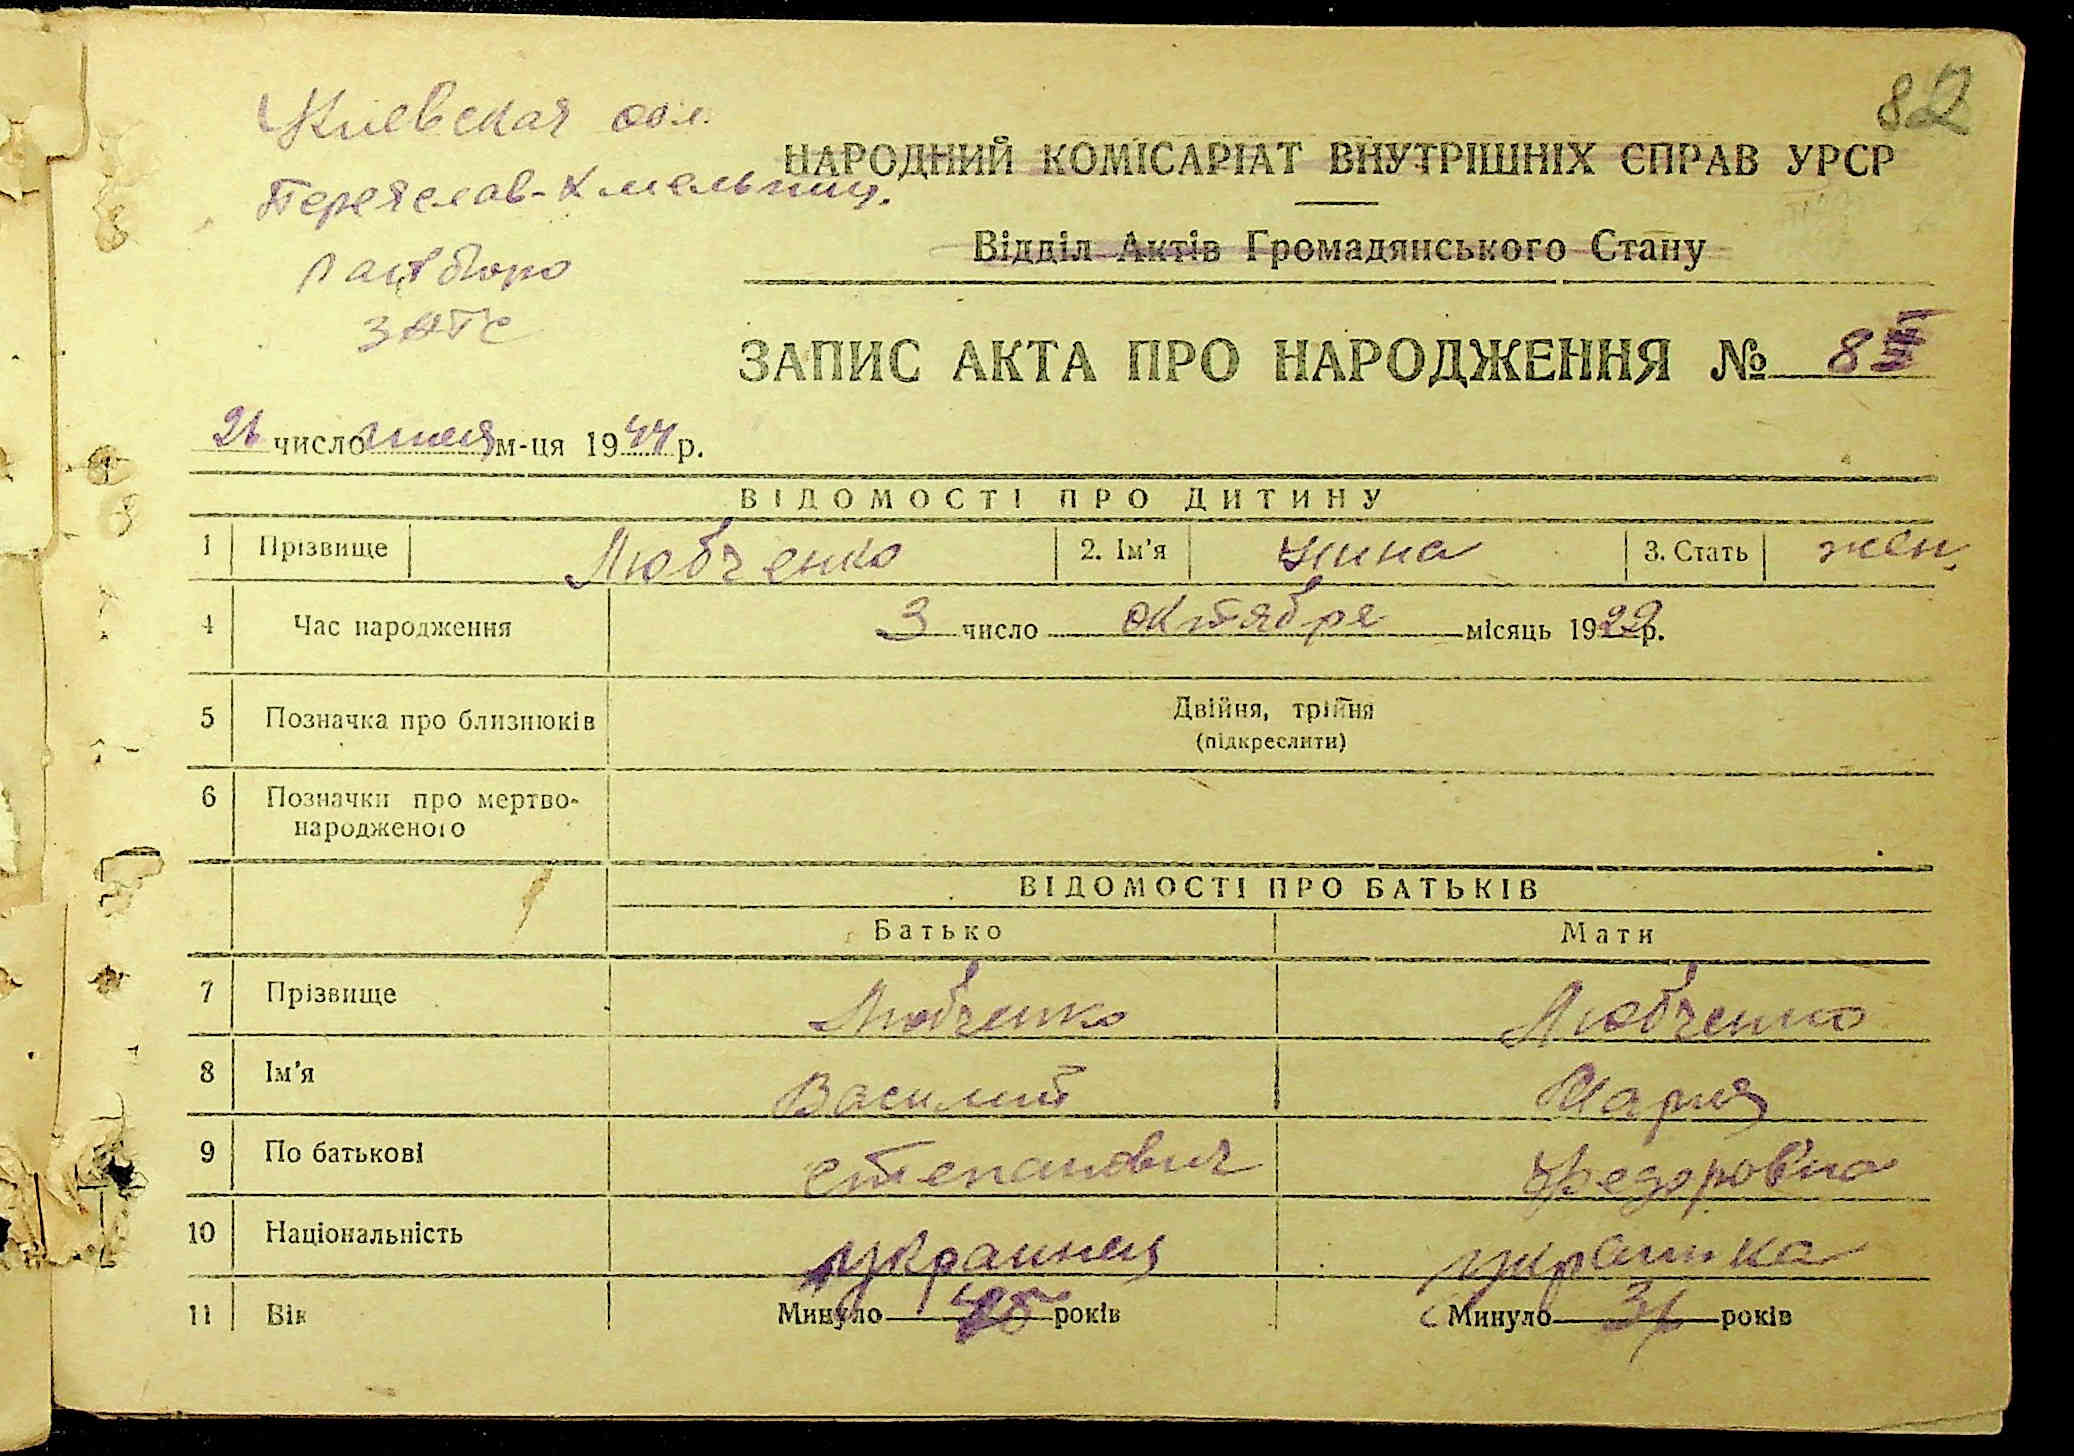 82
Киевская обл.
Переяслав-Хмельниц.
бюро
ЗАГС
НАРОДНИЙ КОМІСАРІАТ ВНУТРІШНІХ СПРАВ УРСР
Відділ Актів Громадянського Стану
ЗАПИС АКТА ПРО НАРОДЖЕННЯ № 8
число м-ця 1944 р.
ВІДОМОСТІ ПРО ДИТИНУ
1 Прізвище Любченко 2. Ім'я Нина 3. Стать жен.
4 Час народження 3 число октября місяць 19 р.
5 Позначка про близнюків Двійня, трійня
(підкреслити)
6 Позначки про мертво-
народженого
ВІДОМОСТІ ПРО БАТЬКІВ
Батько Мати
7 Прізвище Любченко Любченко
8 Ім'я Василий Мария
9 По батькові Степанович Федоровна
10 Національність украинец украинка
11 Вік Минуло років Минуло років